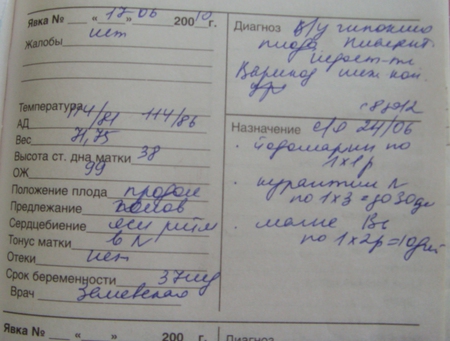 Явка № "17" 06 2010 г.
Жалобы нет
Температура
АД 114/81 114/86
Вес 71,75
Высота ст. дна матки 38
ОЖ 99
Положение плода продол
Предлежание голов
Сердцебиение ясн ритм
Тонус матки в N
Отеки нет
Срок беременности 37 нед
Врач
Диагноз в/у гипоксия
плода
Назначение с/о 24/06
. йодомарин по
1х1р
. курантил N
по 1х3 =
. магне В6
по 1х2р =10дней
Явка № " " 200 г.
Диагноз